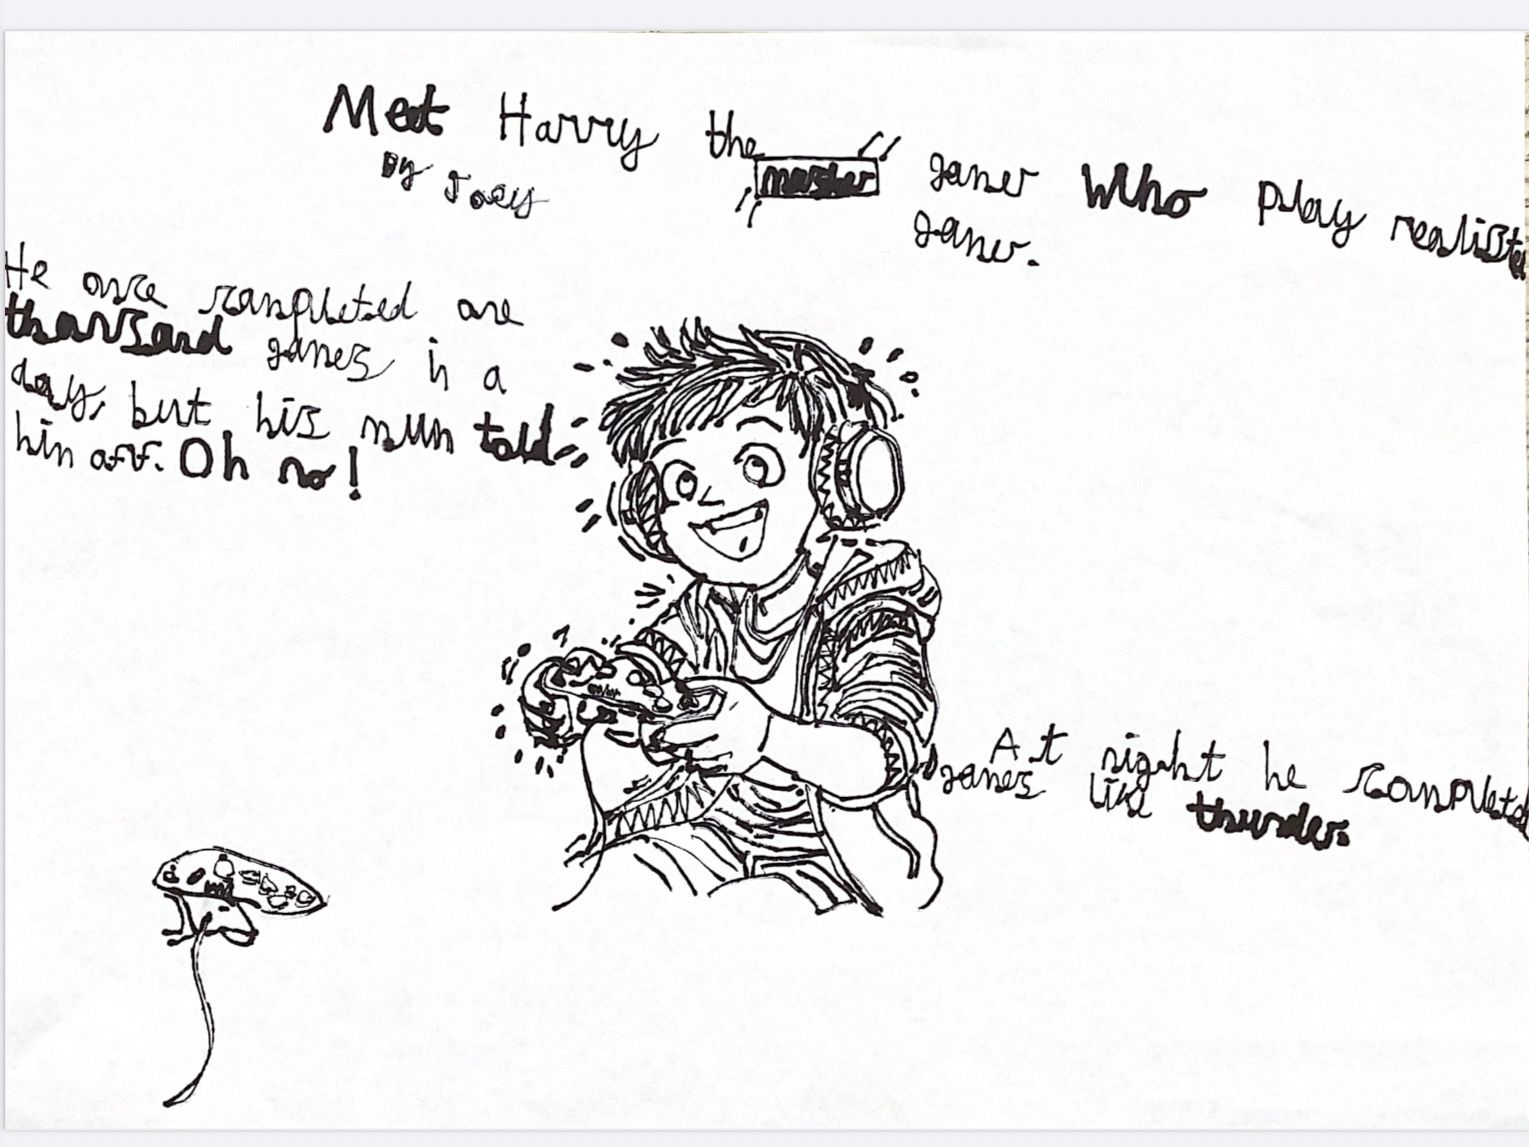 Meet Harry the master gamer Who play realistic
gamer.
By Joey
He once completed one
thousand games in a
day, but his mum told
him off. Oh no!
At night he completed
games like thunder.